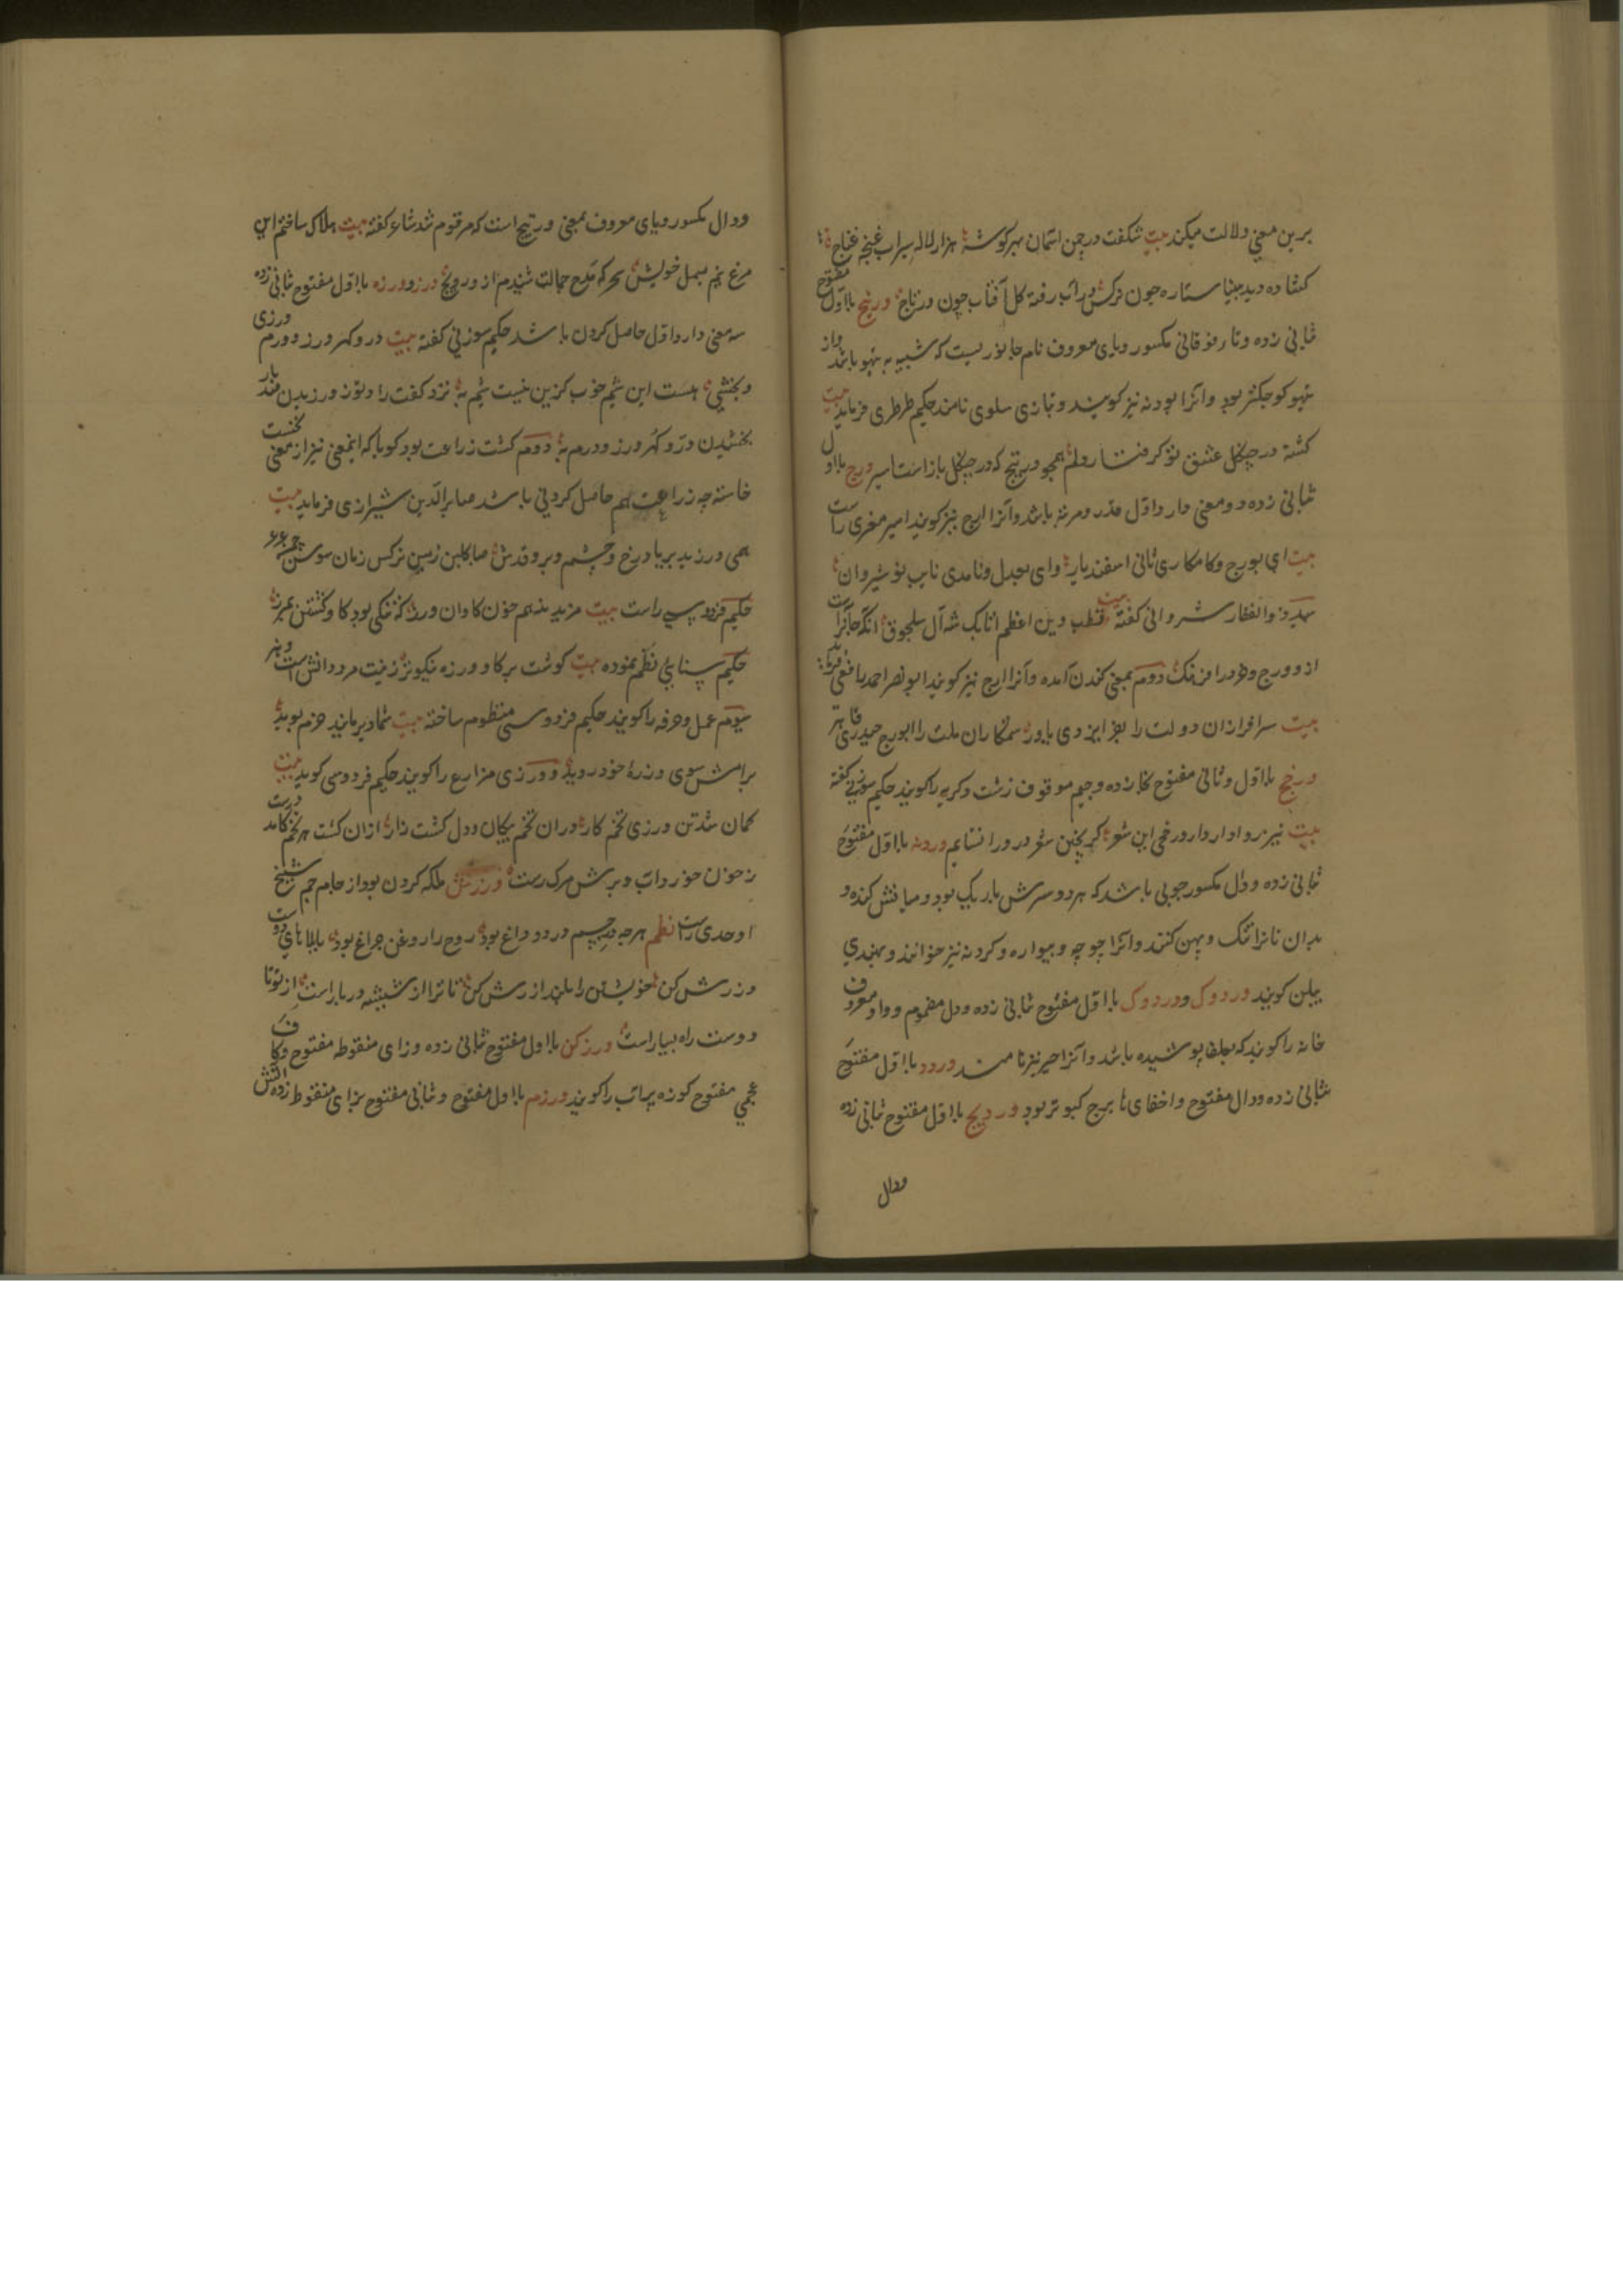 برین معنی دلالت میکند بیت شکفت در چمن اسمان بهر کوشه هزار لاله سیراب غنچه غناج
کشاده دیده بینا ستاره چون نرکس در آب رفته کل آفتاب چون ورتاج ورتیج بااول مفتوح
ثانی زده و تاء فوقانی مکسور و یای معروف نام جانوریست که شبیه به تیهو باشد و از
تیهو کوچکتر بود و آنرا بودنه نیز کویند و بتازی سلوی نامند حکیم طرطری فرماید بیت
کشته در چنکل عشق تو کرفتار دلم همچو ورتیج که در چنکل باز است اسیر ورج بااول
ثانی زده دو معنی دارد اول قدر و مرتبه باشد و آنرا ارج نیز کویند امیر معزی راست
بیت ای بورج و کامکاری ثانی اسفندیار وای بعدل و نامداری نایب نوشیروان
سید ذوالفقار شروانی کفته بیت قطب دین اعظم اتابک شه آل سلجوق آنکه جان راست
از و ورج و خرد را فرهنک دوم بمعنی کندن آمده و آنرا ارج نیز کویند ابو نصر احمد رافعی فرماید
بیت سرافرازان دولت را بفر ایزدی یاور ستمکاران ملت را بورج حیدری قاهر
ورخج بااول و ثانی مفتوح بخا زده و جیم موقوف زشت و کریه را کویند حکیم سوزنی کفته
بیت نیز روادار دار ورخجی این شعر کر بچنین شعر در ورا بستایم وردنه بااول مفتوح
ثانی زده و دال مکسور چوبی باشد که هر دو سرش باریک بود و میانش کنده و
بدان نانرا تنک و پهن کنند و آنرا چوچه و بیواره و کردنه نیز خوانند و بهندی
بیلن کویند وردوک و وردوک بااول مفتوح ثانی زده و دال مضموم و واو معروف
خانه را کویند که بعلف پوشیده باشد و آنرا خیر نیز نامند ورده بااول مفتوح
ثانی زده و دال مفتوح و اخفای ها برج کبوتر بود وردیج بااول مفتوح ثانی زده
ودال
ودال مکسور و یای معروف بمعنی ورتیج است که مرقوم شد شاعر کفته بیت هلاک ساختم این
مرغ نیم بسمل خویش سحر که مدح جمالت شنیدم از وردیج ورز و ورزه بااول مفتوح ثانی زده
سه معنی دارد اول حاصل کردن باشد حکیم سوزنی کفته بیت در و کهر ورز و درم ورزی
و بخشی هست این شیم خوب کزین نیست شیم به نزد کفت راد تو ز ورزیدن صد بار
بخشیدن در و کهر ورز و درم به دوم کشت زراعت بود کویا که اینمعنی نیز از معنی نخست
خاسته چه زراعت هم حاصل کردنی باشد صابر الدین شیرازی فرماید بیت
همی ورزید بریاد رخ و چشم و بر و قدش صبا کلبن زمین نرکس زمان سوسن
حکیم فردوسی راست بیت مریزید هم خون کاوان ورز که ننکی بود کاو کشتن بمرز
حکیم سنایی نظم نموده بیت کوشت بر کاو ورزه نیکوتر زینت مرد دانش است و هنر
سیوم عمل و حرفه را کویند حکیم فردوسی منظوم ساخته بیت شما دیر مانید خرم بوید
برامش سوی ورزه خود روید و ورزی مزارع را کویند حکیم فردوسی کوید بیت
کمان شد تن ورزی تخم کار در آن تخم پیکان و دل کشت زار از ان کشت هر تخم کامد درست
ز خون خورد آب و برش مرک رست ورزش ملکه کردن بود از جام جم شیخ
اوحدی راست نظم هر چه بر چشم در دود داغ بود روح را روغن چراغ بود با بلاهای دوست
ورزش کن خویشتن را بلند ارزش کن تا ترا از شبیشه در بار است از تو تا
دوست راه بسیار است ورزکن بااول مفتوح ثانی زده و زای منقوطه مفتوح و کاف
عجمی مفتوح کوزه پر آب را کویند ورزم بااول مفتوح و ثانی مفتوح بزای منقوط زده آتش